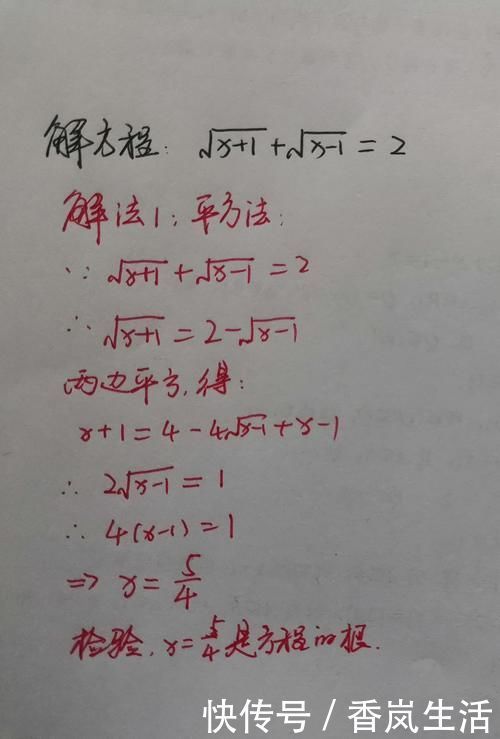 解方程: √x+1 + √x-1 = 2
解法1: 平方法:
∵ √x+1 + √x-1 = 2
∴ √x+1 = 2-√x-1
两边平方,得:
x+1=4-4√x-1+x-1
∴ 2√x-1 = 1
∴ 4(x-1)=1
⇒ x=5/4
检验,x=5/4是方程的根.
快传号/香岚生活